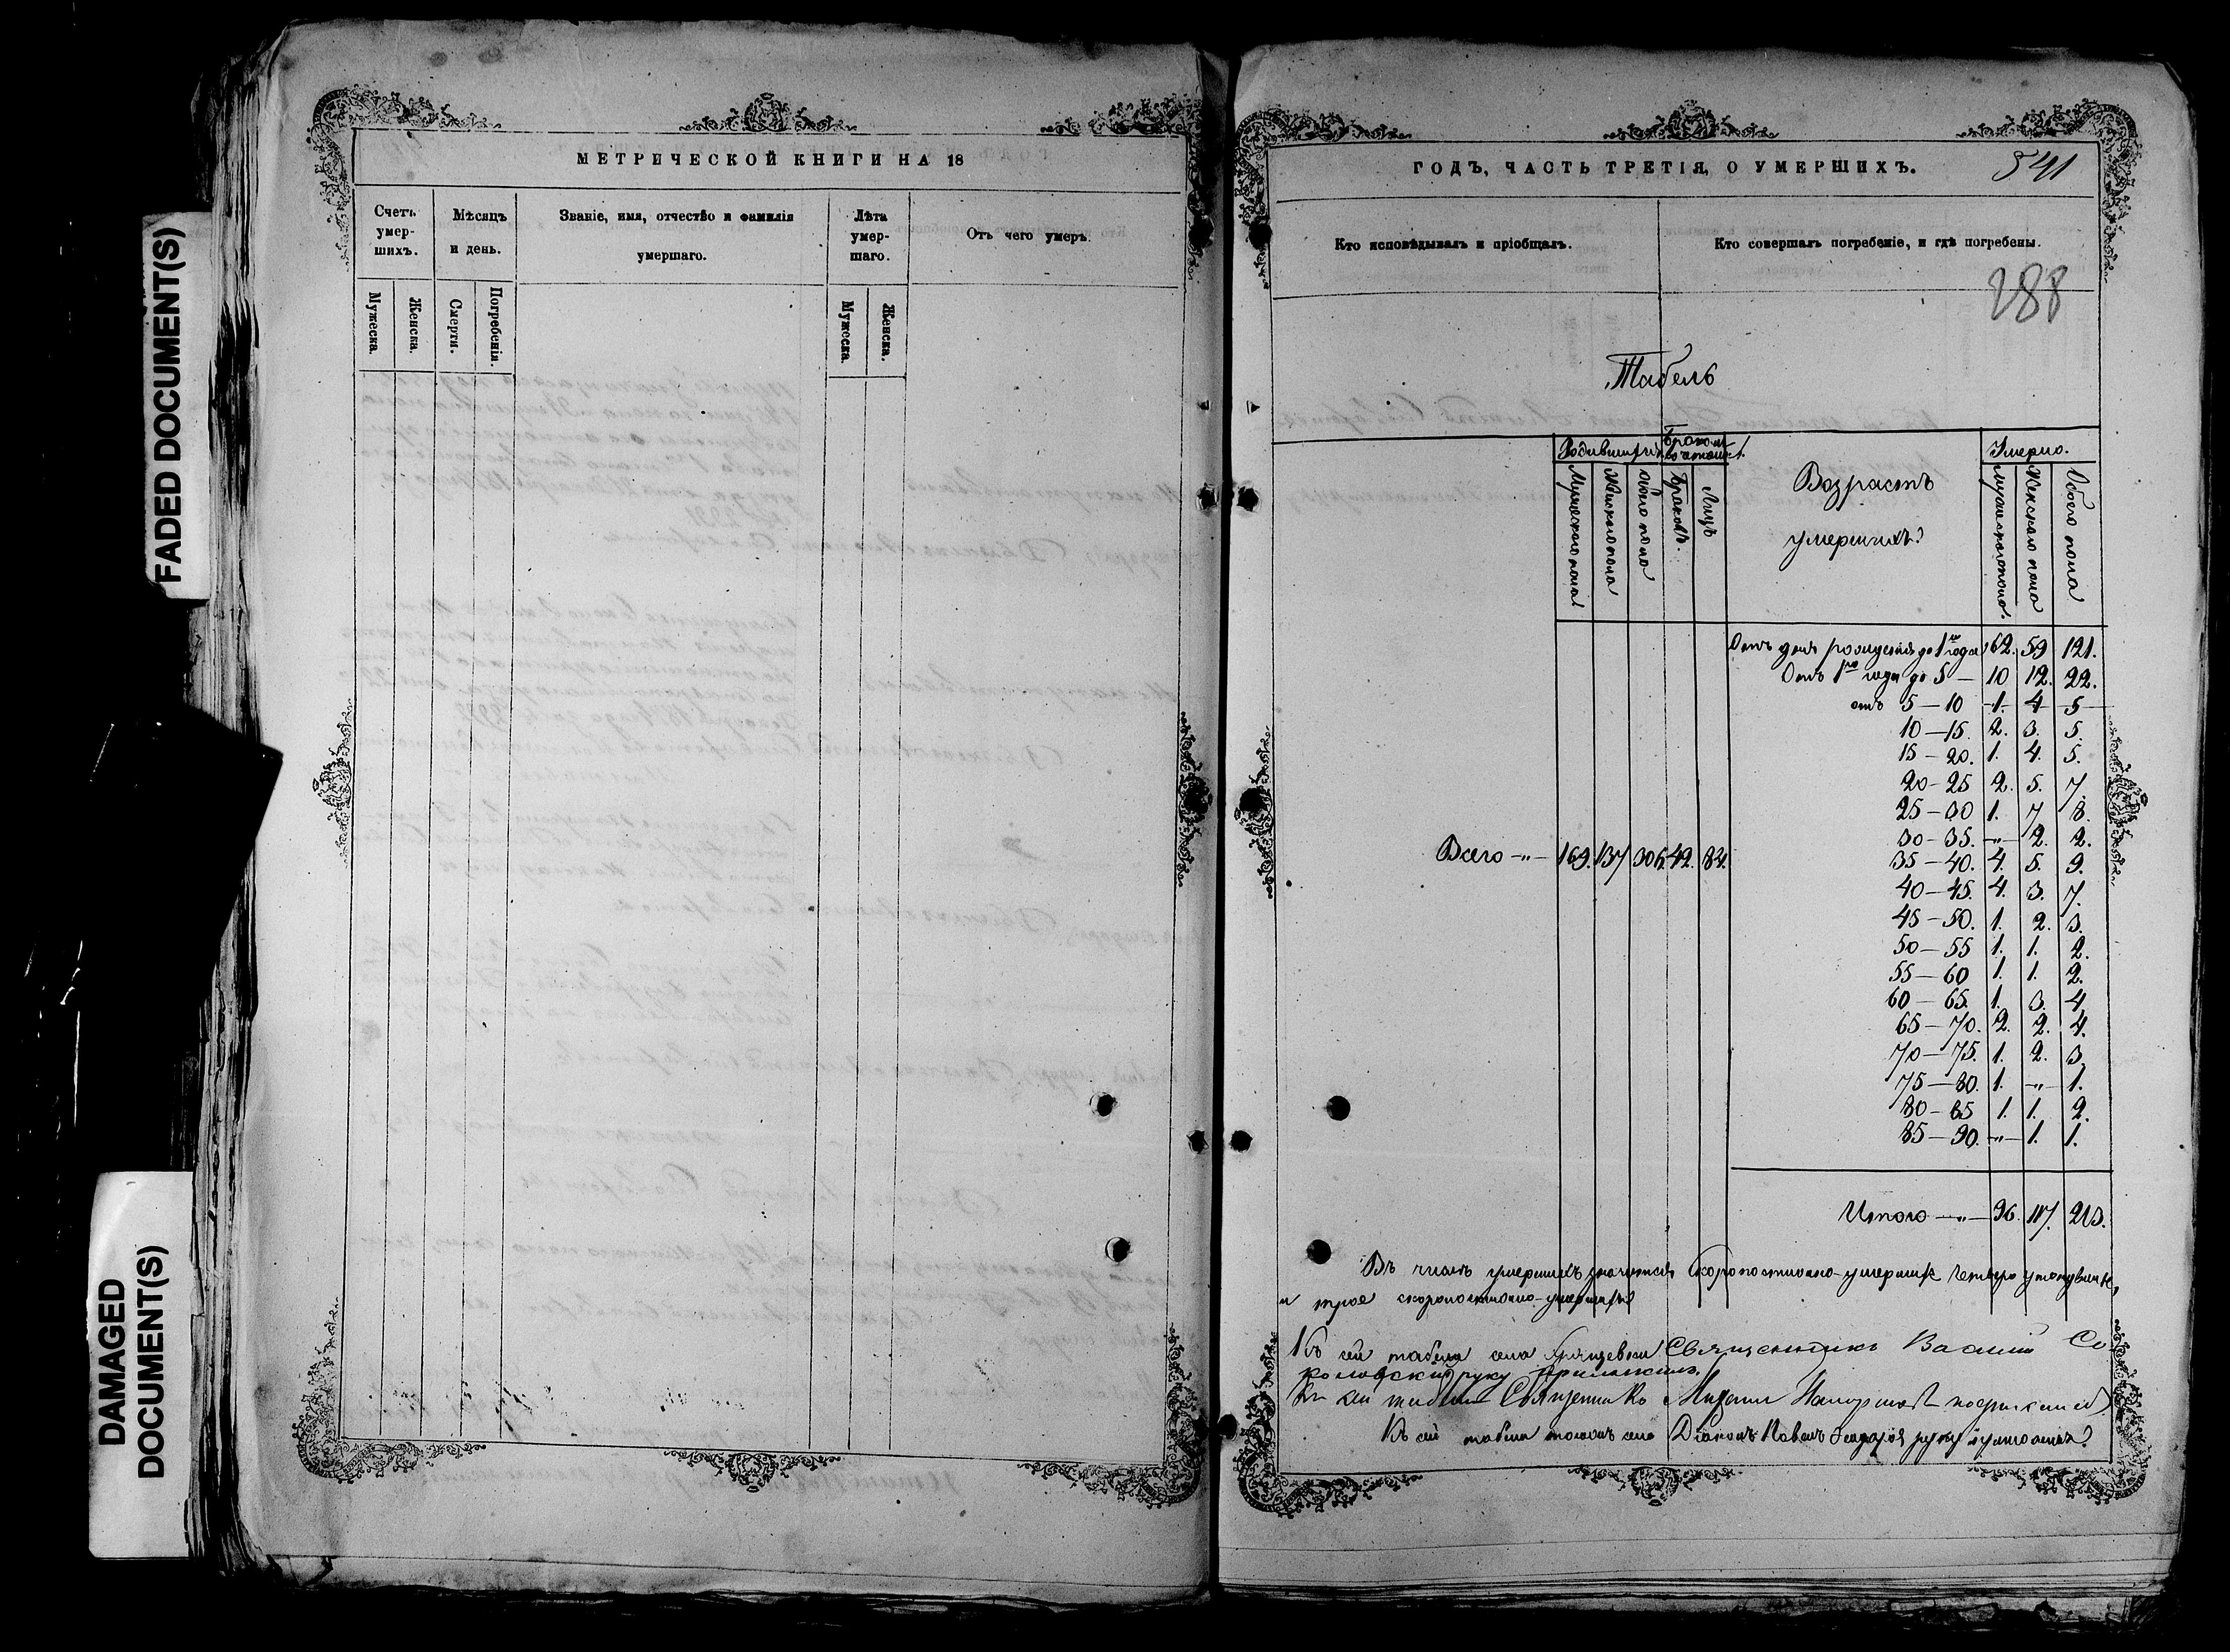 FADED DOCUMENT(S)
DAMAGED
DOCUMENT(S)
МЕТРИЧЕСКОЙ КНИГИ НА 18
Счетъ умер-шихъ.
Мѣсяцъ и день.
Званіе, имя, отчество и фамилія умершаго.
Лѣта умер-шаго.
Отъ чего умеръ.
Мужеска.
Женска.
Смерти.
Погребенія.
Мужеска.
Женска.
ГОДЪ, ЧАСТЬ ТРЕТІЯ, О УМЕРШИХЪ.
541
Кто исповѣдывалъ и пріобщалъ.
Кто совершалъ погребеніе, и гдѣ погребены.
288
Табель
Мужескаго пола
Женскаго пола
Обоего пола
Браковъ.
Лицъ
Возрастъ
умершихъ
Умерло.
Мужескаго пола
Женскаго пола
Обоего пола
Отъ дня рожденія до 1го года 62. 59 121.
Отъ 1го года до 5 — 10 12. 22.
отъ 5 — 10 1. 4 5
10 — 15. 2. 3. 5.
15 — 20. 1. 4. 5.
20 - 25 2. 5. 7.
25 — 30 1. 7 8.
30 — 35. -"- 2. 2.
Всего -"- 169. 137 306. 42. 84.
35 — 40. 4. 5. 9.
40 — 45. 4. 3. 7.
45 — 50. 1. 2. 3.
50 — 55 1. 1. 2.
55 — 60 1. 1. 2.
60 — 65. 1. 3. 4.
65 — 70. 2. 2. 4.
70 — 75. 1. 2. 3.
75 — 80. 1. -"- 1.
80 - 85 1. 1. 2.
85 — 90. -"- 1. 1.
Итого -"- 96. 117. 213.
Въ числѣ умершихъ значится скоропостижно-умершихъ четверо
и трое скоропостижно-умершихъ
Къ сей табели села Священникъ Василій Со
коловскій руку приложилъ.
Къ сей табели Священникъ Михаилъ
Къ сей табели тогожъ села Діаконъ Павелъ руку приложилъ